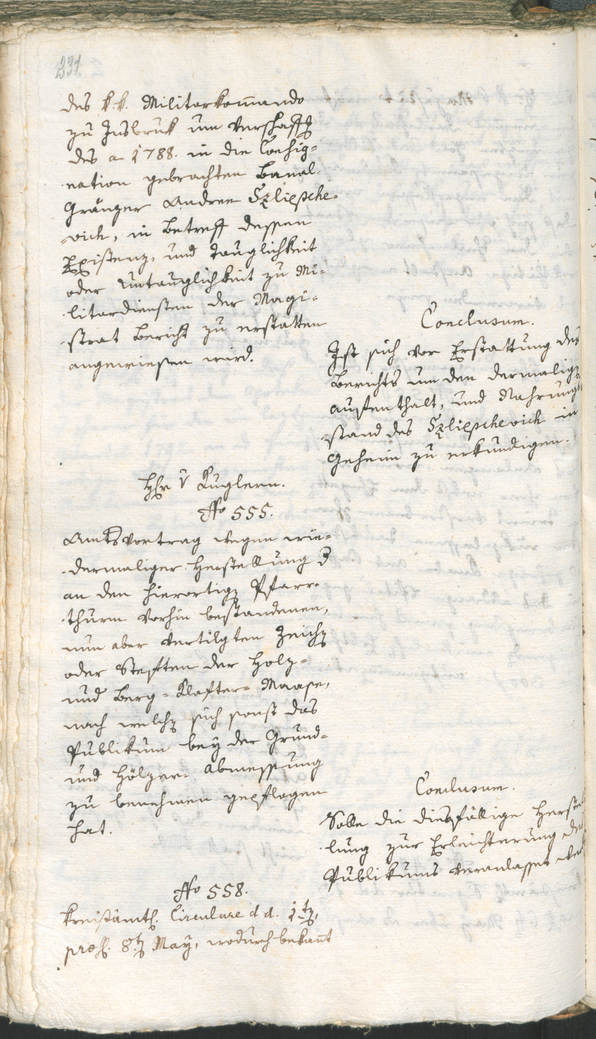 331.
des k. k. Militarkom̅ando
zu Insbruk um Verschaffg
des a 1788. in die Consig-
nation gebrachten Banal
Gränzer Andreè Szliepsche-
vich, in Betreff dessen
Existenz, und Tauglichkeit
oder Untauglichkeit zu Mi-
litardiensten der Magi-
strat Bericht zu erstatten
angewiesen wird.
Conclusum.
Ist sich vor Erstattung des
Berichts um den dermalign
Aufenthalt, und Nahrungs-
stand des Szliepschevich in
Geheim zu erkundigen.
Hhr v Kuglern.
No 555.
Amtsvortrag wegen wie-
dermaliger Herstellung d
an den hierortign Pfarr-
thurm vorhin bestandenen,
nun aber vertilgten Zeichn
oder Steften der Holz-
und Berg-Klafter-Maase,
nach welchn sich sonst das
Publikum bey der Grund-
und Hölzer Abmessung
zu benehmen gepflogen
hat.
Conclusum.
Solle die diesfällige Herstel-
lung zur Erleichterung des
Publikums veranlasset wer
No 558.
Kreisämtl. Circulare dd. 1tn,
præs. 8tn May, wodurch bekant